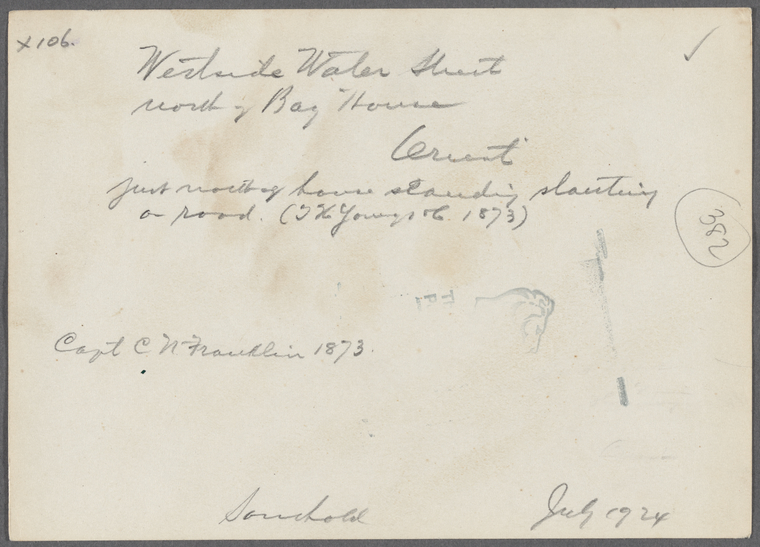 x106.
Westside Water Street
north of Bay House
Orient
just north of house standing slanting
on road. (T H Young 1873)
382
Capt C N Franklin 1873.
Southold
July 1924